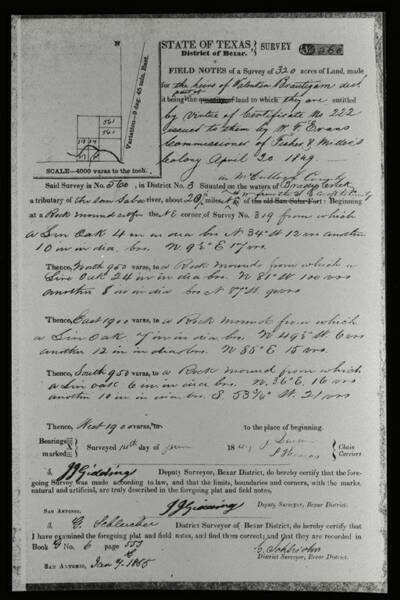 N
STATE OF TEXAS,
District of Bexar.
SURVEY
No 560
Variation—9 deg. 45 min. East.
561
560
SCALE—4000 varas to the inch.
FIELD NOTES of a Survey of 320 acres of Land, made
for the heirs of Valentin Brautigam decd
it being the land to which they are entitled
by virtue of Certificate No 222
issued to them by W. F. Evans
Commissioner of Fisher & Miller's
Colony April 20 1849
in McCulloch County
Said Survey is No. 560, in District No. 3 Situated on the waters of Brady Creek
a tributary of the San Saba river, about 20 miles of the old San Saba Fort: Beginning
at a Rock mound for the N E corner of Survey No. 319 from which
a Live Oak 4 in in dia brs. N 34° W 12 vrs another
10 in in dia. brs. N 95° E 17 vrs.
Thence, North 950 varas, to a Rock Mound from which a
Live Oak 24 in in dia brs. N 81° W. 100 vrs
another 8 in in dia brs N 87° W. 9 vrs
Thence, East 1900 varas, to a Rock Mound from which
a Live Oak 7 in in dia brs. N 49½° W. 6 vrs
another 12 in in dia brs. N 85° E 15 vrs.
Thence, South 950 varas, to a Rock Mound from which
a Live oak 6 in in dia brs. N. 36° E. 16 vrs
another 10 in in dia brs. S 53½° W. 21 vrs
Thence, West 1900 varas, to to the place of beginning.
Bearings marked
Surveyed 14th day of June 184
Chain Carriers
I, J J Giddings Deputy Surveyor, Bexar District, do hereby certify that the fore-
going Survey was made according to law, and that the limits, boundaries and corners, with the marks,
natural and artificial, are truly described in the foregoing plat and field notes.
SAN ANTONIO, J J Giddings Deputy Surveyor, Bexar District.
I, G. Schleicher District Surveyor of Bexar District, do hereby certify that
I have examined the foregoing plat and field notes, and find them correct; and that they are recorded in
Book G No. 6 page 553
G. Schleicher
SAN ANTONIO, Jan 9. 1855 District Surveyor, Bexar District.